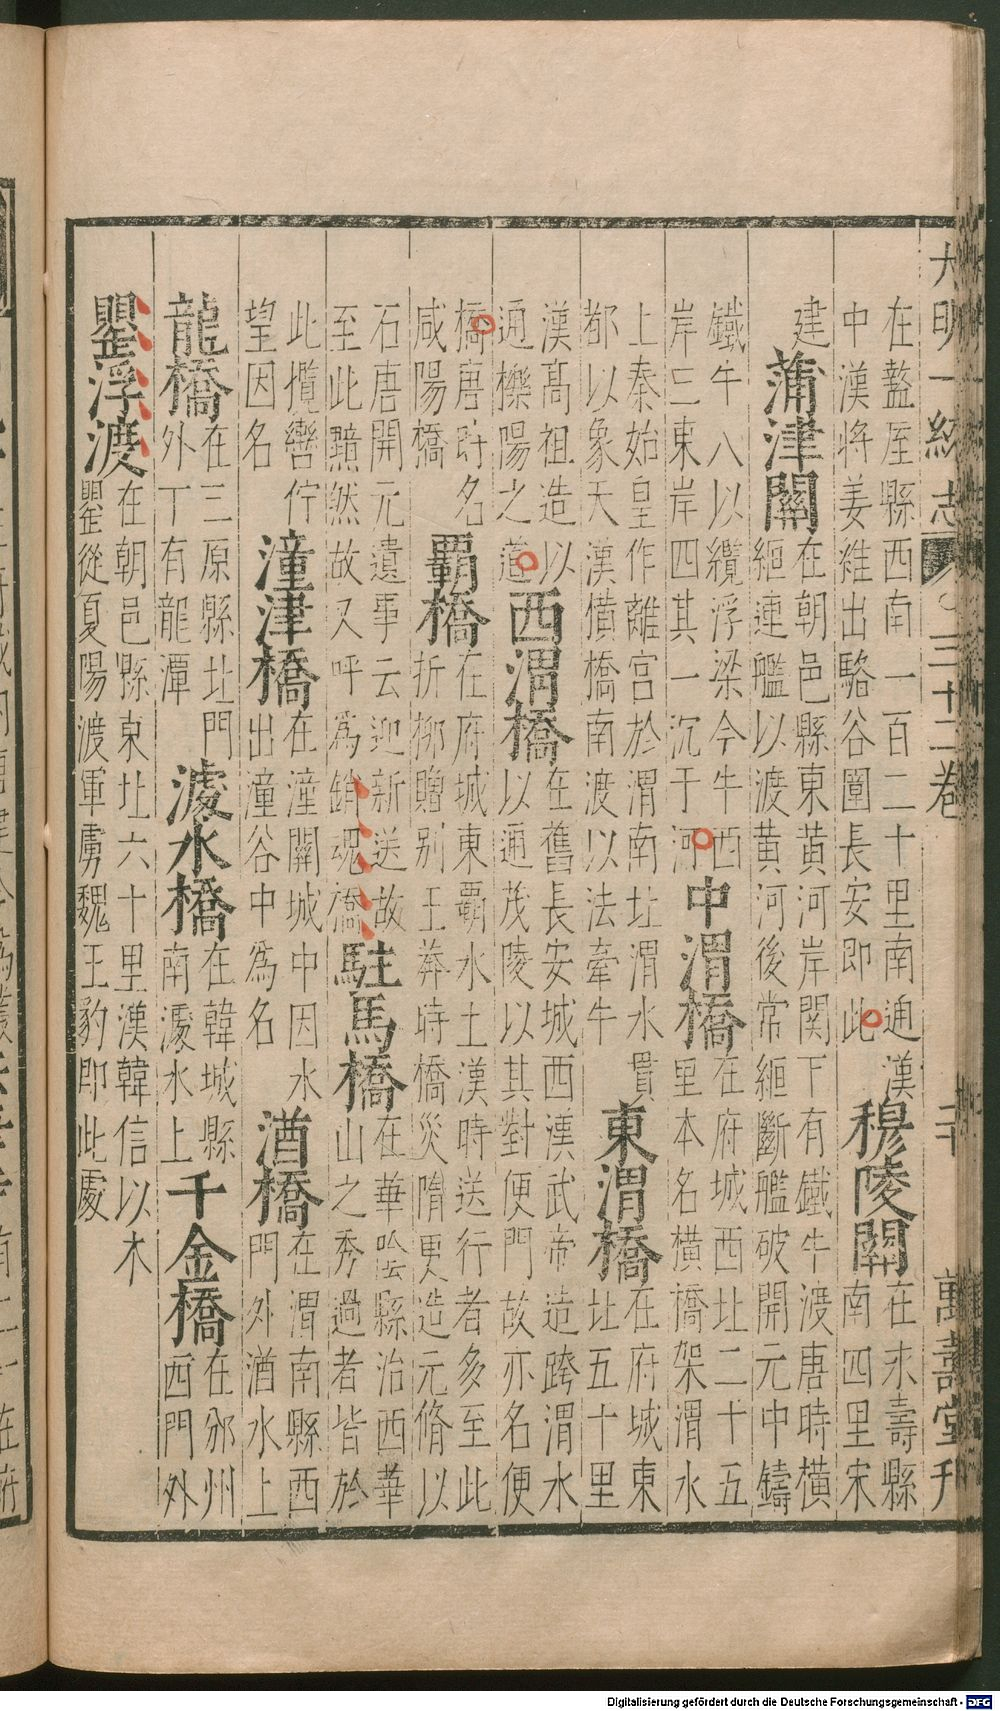 大明一統志 三十二卷 二十 萬壽堂刊
在盩厔縣西南一百二十里南通漢
中漢將姜維出駱谷圍長安即此
穆陵關
在永壽縣
南四里宋
建
蒲津關
在朝邑縣東黃河岸関下有鐵牛渡唐時橫
絙連艦以渡黃河後常絙斷艦破開元中鑄
鐵牛八以纜浮梁今牛西
岸三東岸四其一沉于河
中渭橋
在府城西北二十五
里本名橫橋架渭水
上秦始皇作離宮於渭南北渭水貫
都以象天漢橫橋南渡以法牽牛
東渭橋
在府城東
北五十里
漢高祖造以
通櫟陽之道
西渭橋
在舊長安城西漢武帝造跨渭水
以通茂陵以其對便門故亦名便
橋唐時名
咸陽橋
霸橋
在府城東霸水上漢時送行者多至此
折柳贈别王莽時橋災隋更造元脩以
石唐開元遺事云迎新送故
至此黯然故又呼為銷魂橋
駐馬橋
在華陰縣治西華
山之秀過者皆於
此攬轡佇
望因名
潼津橋
在潼關城中因水
出潼谷中為名
湭橋
在渭南縣西
門外湭水上
龍橋
在三原縣北門
外下有龍潭
澽水橋
在韓城縣
南澽水上
千金橋
在邠州
西門外
罌浮渡
在朝邑縣東北六十里漢韓信以木
罌從夏陽渡軍虜魏王豹即此處
Digitalisierung gefördert durch die Deutsche Forschungsgemeinschaft - DFG